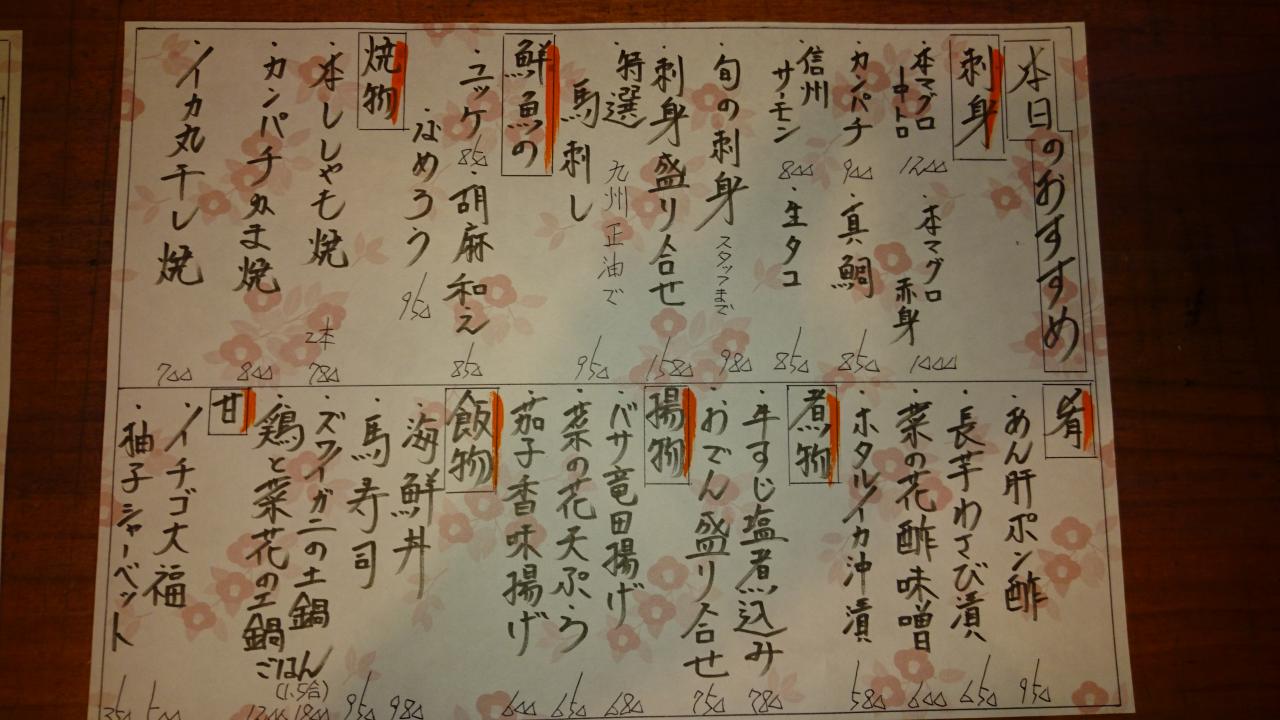 本日のおすすめ
刺身
・本マグロ中トロ 12△△
・本マグロ赤身 10△△
・カンパチ 9△△
・真鯛 85△
・信州サーモン 8△△
・生タコ 85△
・旬の刺身 スタッフまで 98△
・刺身盛り合せ 158△
・特選馬刺し 九州正油で 95△
鮮魚の
・ユッケ 85△
・胡麻和え 85△
・なめろう 95△
焼物
・本ししゃも焼 2本 78△
・カンパチカマ焼 8△△
・イカ丸干し焼 7△△
肴
・あん肝ポン酢 95△
・長芋わさび漬 65△
・菜の花酢味噌 6△△
・ホタルイカ沖漬 58△
煮物
・牛すじ塩煮込み 78△
・おでん盛り合せ 75△
揚物
・バサ竜田揚げ 68△
・菜の花天ぷら 65△
・茄子香味揚げ 6△△
飯物
・海鮮丼 98△
・馬寿司 95△
・ズワイガニの土鍋 18△△
・鶏と菜花の土鍋 12△△
ごはん
(1.5合)
甘
・イチゴ大福 5△△
・柚子シャーベット 35△